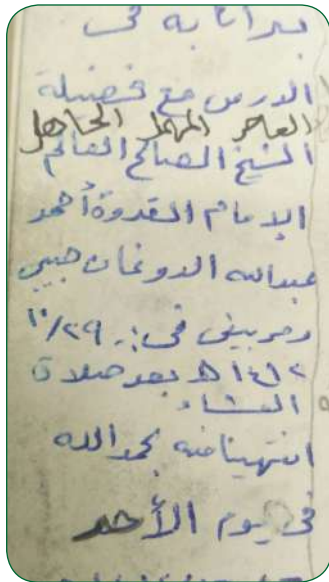 بدأنا به في
الدرس مع فضيلة
العاجز المهمل الجاهل
الشيخ الصالح العالم
الإمام القدوة أحمد
عبدالله الدوغان حبيبي
ومربيني في: ١٠/٢٩
١٤١٢ھ بعد صلاة
العشاء
انتهينا منه بحمد الله
في يوم الأحد